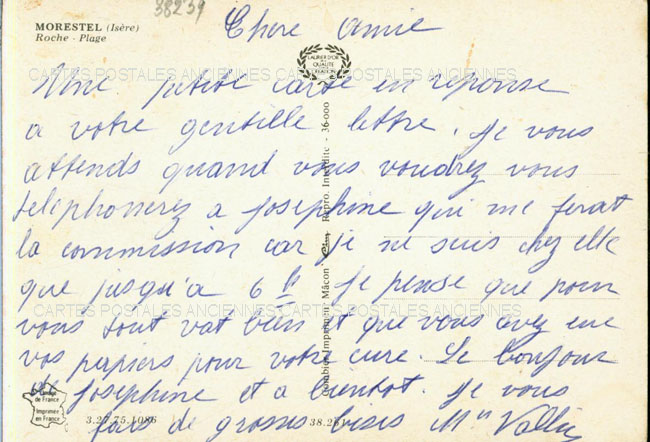 38239
MORESTEL (Isère)
Roche - Plage
Chere amie
LAURIER D'OR
QUALITE
CARTES POSTALES ANCIENNES CARTES POSTALES ANCIENNES
Une petite carte en reponse
a votre gentille lettre. je vous
attends quand vous voudrez vous
telephonerez a josephine qui me ferat
la commission car je ne suis chez elle
que jusqu'a 6 h je pense que pour
CARTES POSTALES ANCIENNES CARTES POSTALES ANCIENNES
vous tout vat bien et que vous avez eue
vos papiers pour votre cure. Le bonjour
de josephine et a bientot. je vous
fais de grosses bises Mme
Combier Imprimeur Mâcon
Repro. Interdite - 36-000
L'image
de France
Imprimée
en France
3.27.75.1086
38.261